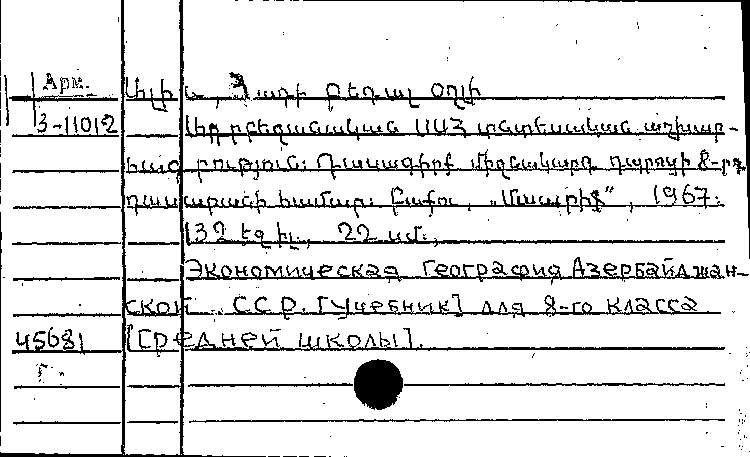 Арм.
Ալիև, Հադի Բեդալ օղլի
3-11012
Ադրբեջանական ՍՍՀ տնտեսական աշխար-
հագրություն: Դասագիրք միջնակարգ դպրոցի 8-րդ
դասարանի համար: Բաքու, „Մաարիֆ", 1967:
132 էջ իլ., 22 սմ.,
Экономическая география Азербайджан-
ской ССР. [Учебник] для 8-го класса
45681 [средней школы].
Г.